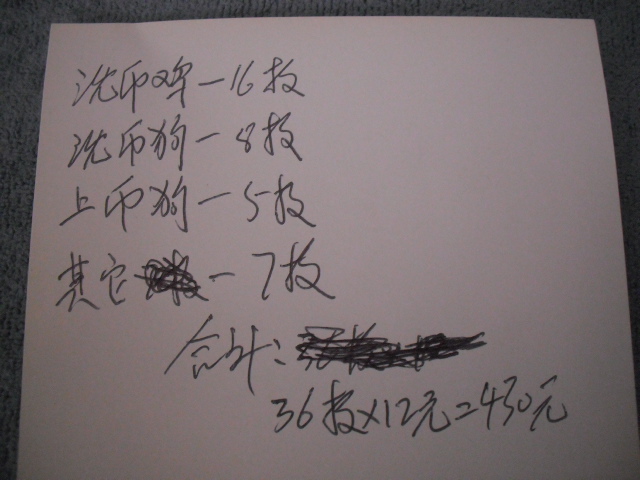 沈币鸡一16枚
沈币狗一8枚
上币狗一5枚
其它一7枚
合计:
36枚×12元=430元